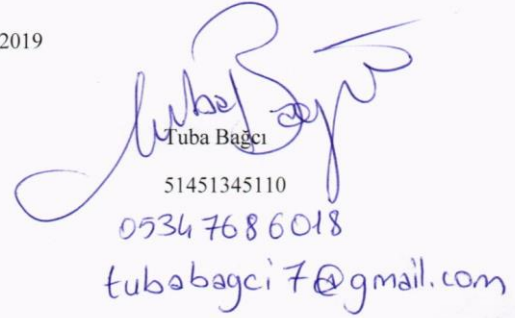 2019
Tuba Bağcı
Tuba Bağcı
51451345110
0534 768 6018
tubabagci7@gmail.com